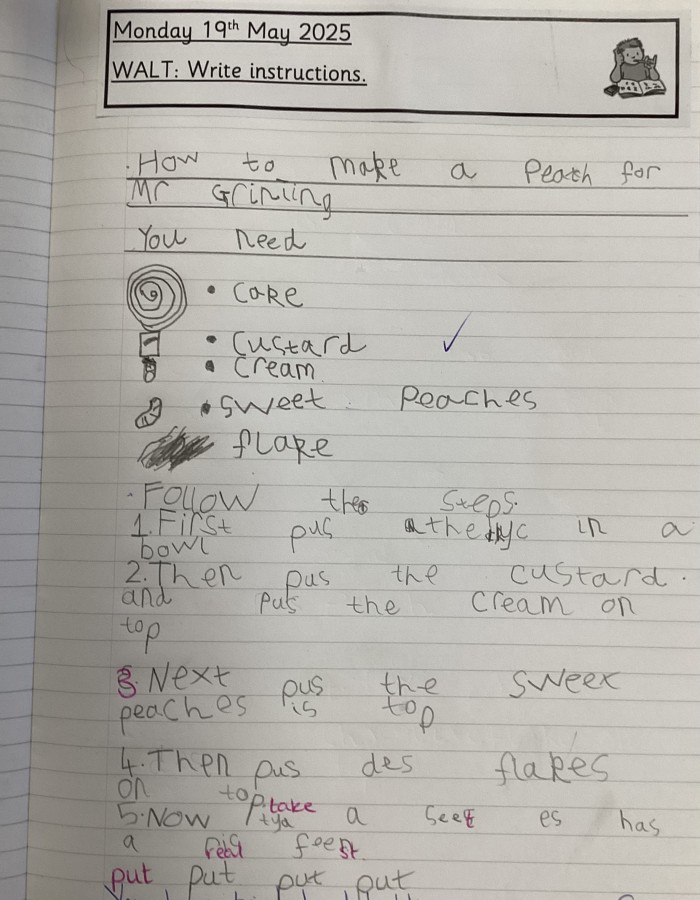 Monday 19th May 2025
WALT: Write instructions.
How to make a Peach for
Mr Grinling
You need
• cake
• Custard
• Cream
• sweet peaches
flake
Follow the steps.
1. First pus the in a
bowl
2. Then pus the custard.
and pus the cream on
top
3. Next pus the sweex
peaches is top
4. Then pus des flakes
on top.
5. Now take a seet es has
tya
a feest.
put put put put